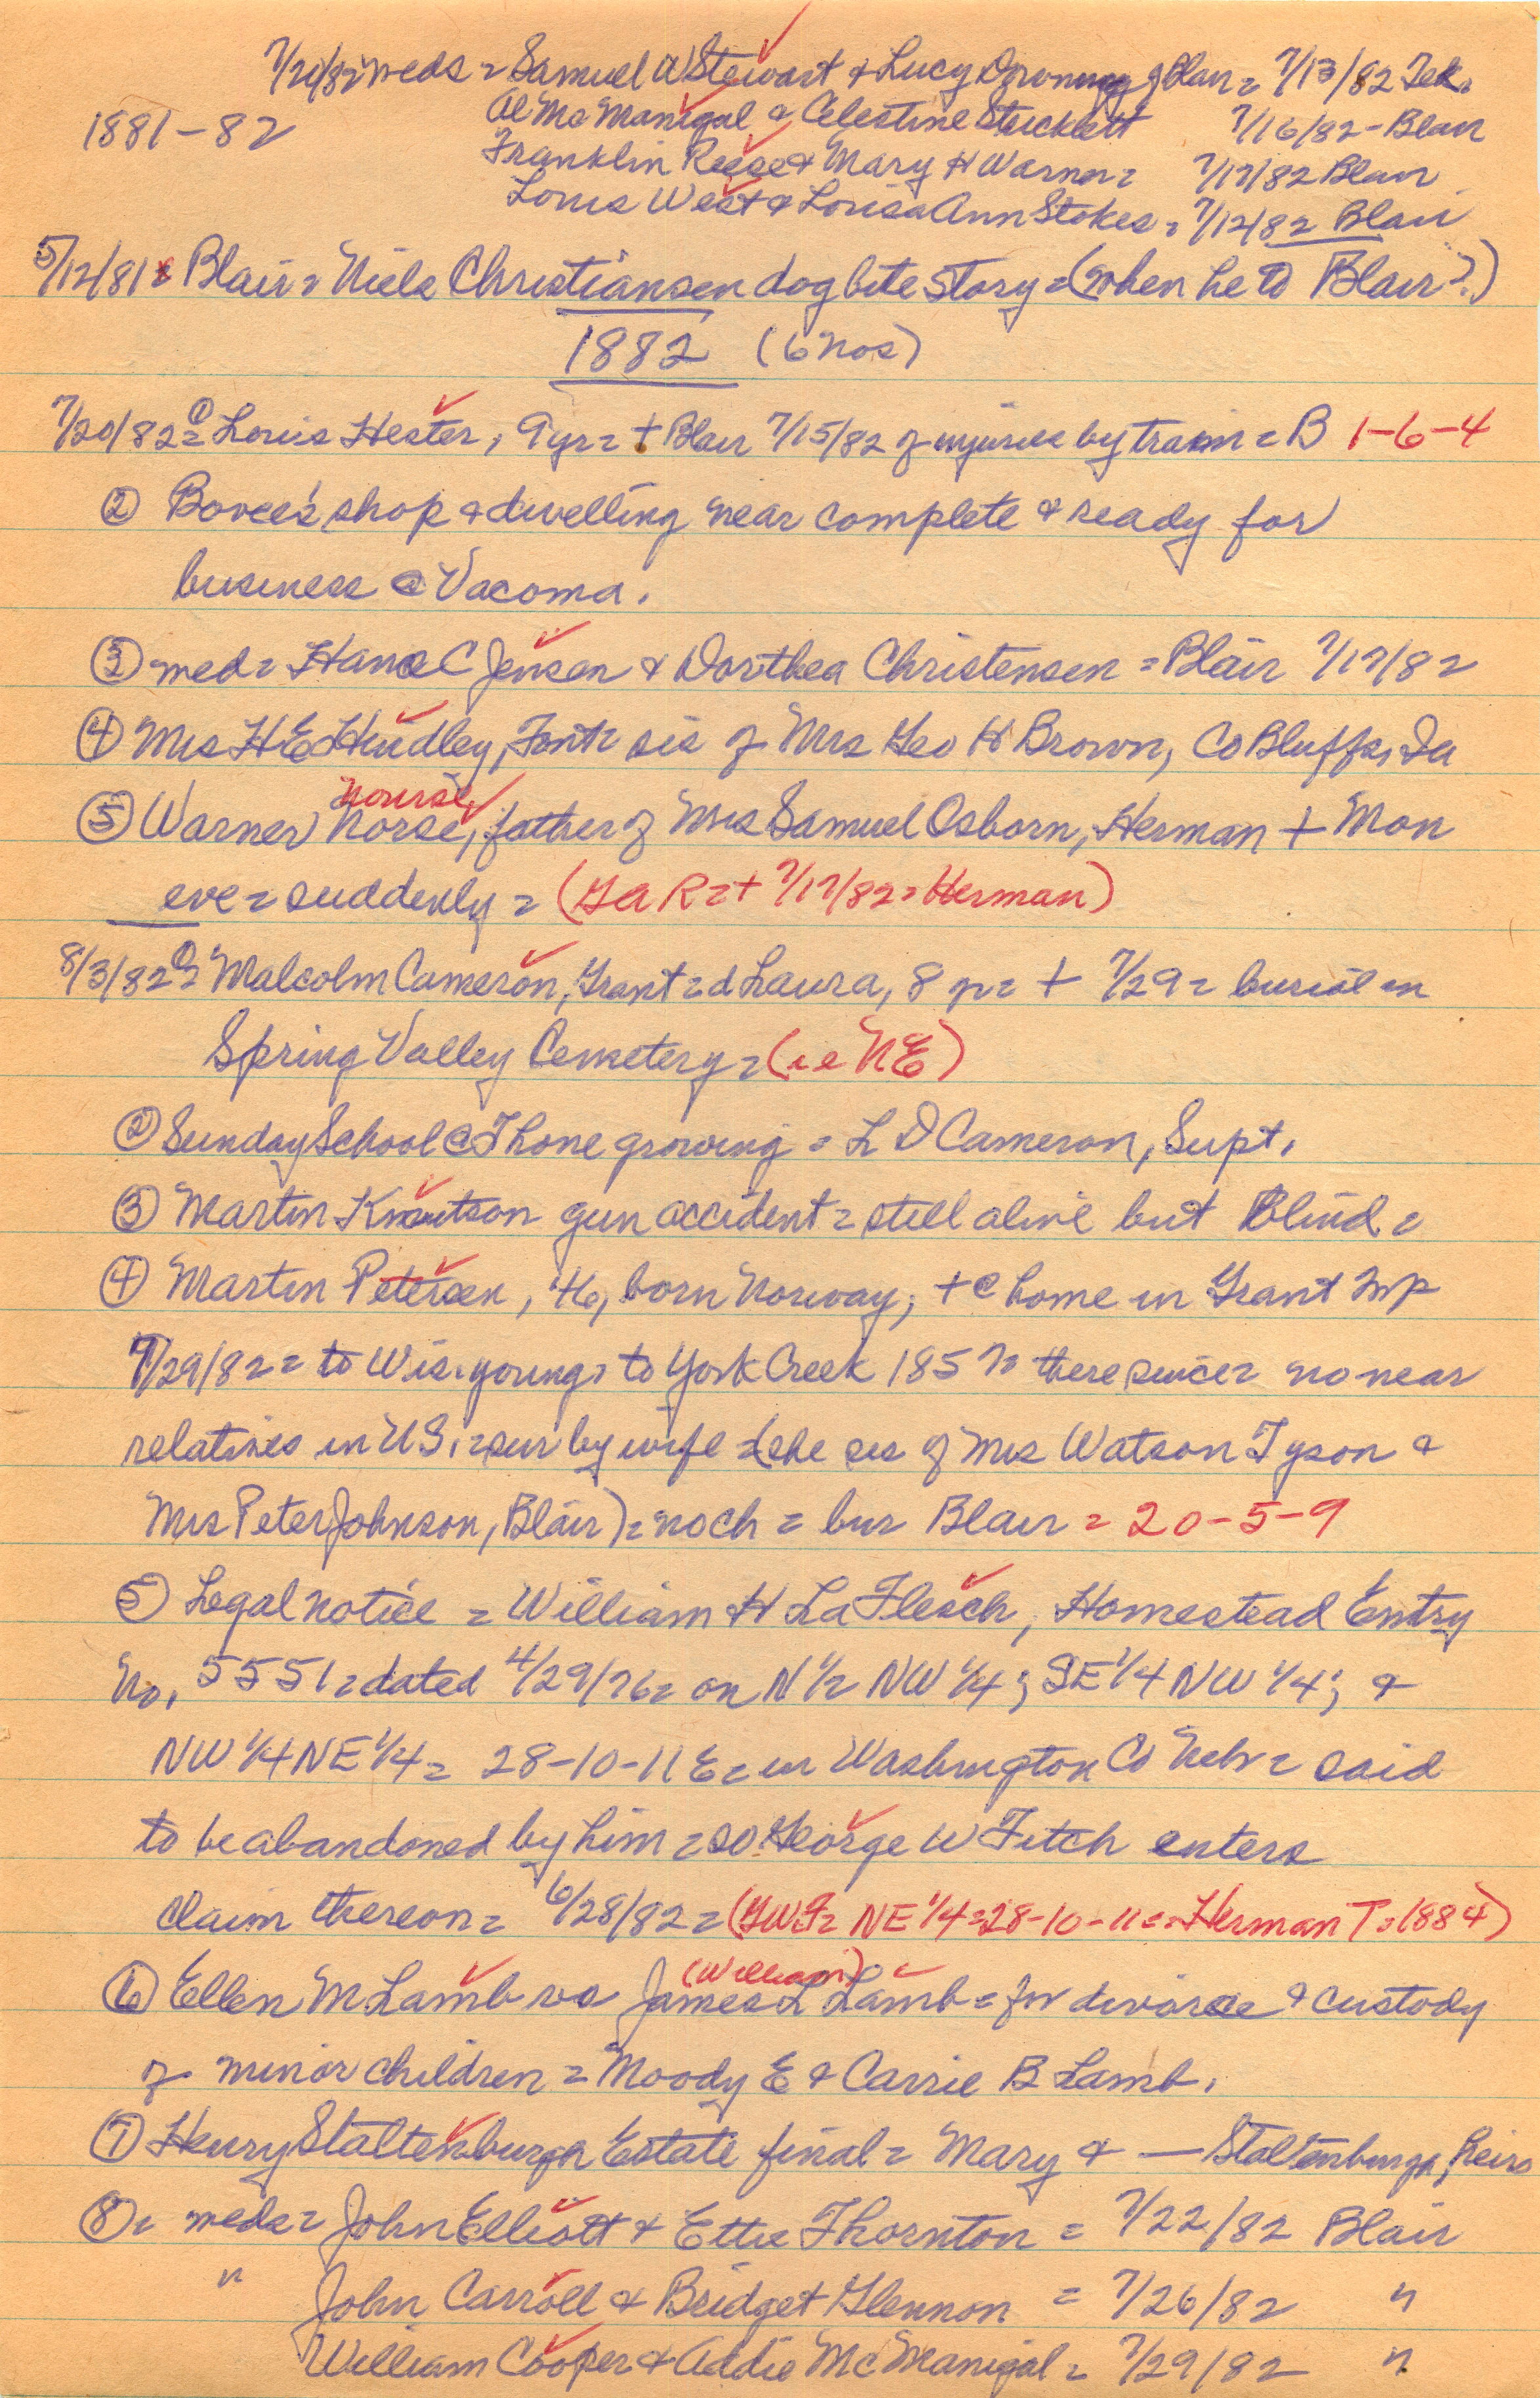 7/20/82 weds = Samuel W Stewart & Lucy Downing of Blair = 7/13/82 Tek.
1881-82
Al McManigal & Celestine Stucklett 7/16/82 - Blair
Franklin Reese & Mary H Warner = 7/17/82 Blair
Louis West & Louisa Ann Stokes = 7/12/82 Blair
5/12/81 = Blair = Niels Christiansen dog bite story = (when he to Blair?)
1882 (6 nos)
7/20/82 = ① Louis Hester, 9 yr = + Blair 7/15/82 of injuries by train = B 1-6-4
② Bovee's shop & dwelling near complete & ready for
business @ Vacoma.
③ wed = Hans C Jensen & Dorthea Christensen = Blair 7/17/82
④ Mrs H E Hindley, Font = sis of Mrs Geo H Brown, Co Bluffs, Ia
Nourse
⑤ Warner Norse, father of Mrs Samuel Osborn, Herman + Mon
eve = suddenly = (GaR = + 7/17/82 = Herman)
8/3/82 = ① Malcolm Cameron, Grant = d Laura, 8 yr = + 7/29 = burial in
Spring Valley Cemetery = (ie NE)
② Sunday School @ Thone growing = L D Cameron, Supt.
③ Martin Knutson gun accident = still alive but Blind =
④ Martin Petersen, 46, born Norway, + @ home in Grant Twp
7/29/82 = to Wis. young = to York Creek 1857 = there since = no near
relatives in US. = sur by wife = (she sis of Mrs Watson Tyson &
Mrs Peter Johnson, Blair) = no ch = bur Blair = 20-5-9
⑤ Legal notice = William H LaFlesch, Homestead Entry
No. 5551 = dated 4/29/76 = on N 1/2 NW 1/4; SE 1/4 NW 1/4; &
NW 1/4 NE 1/4 = 28-10-11 E = in Washington Co Neb = said
to be abandoned by him = so George W Fitch enters
claim thereon = 6/28/82 = (GWF = NE 1/4 = 28-10-11 = Herman T = 1884)
(William)
⑥ Ellen M Lamb vs James L Lamb = for divorce & custody
of minor children = Moody E & Carrie B Lamb.
⑦ Henry Staltenburgh Estate final = Mary & — Staltenburgh, heirs
⑧ = weds = John Elliott & Ettie Thornton = 7/22/82 Blair
" John Carroll & Bridget Glennon = 7/26/82 "
William Cooper & Addie McManigal = 7/29/82 "